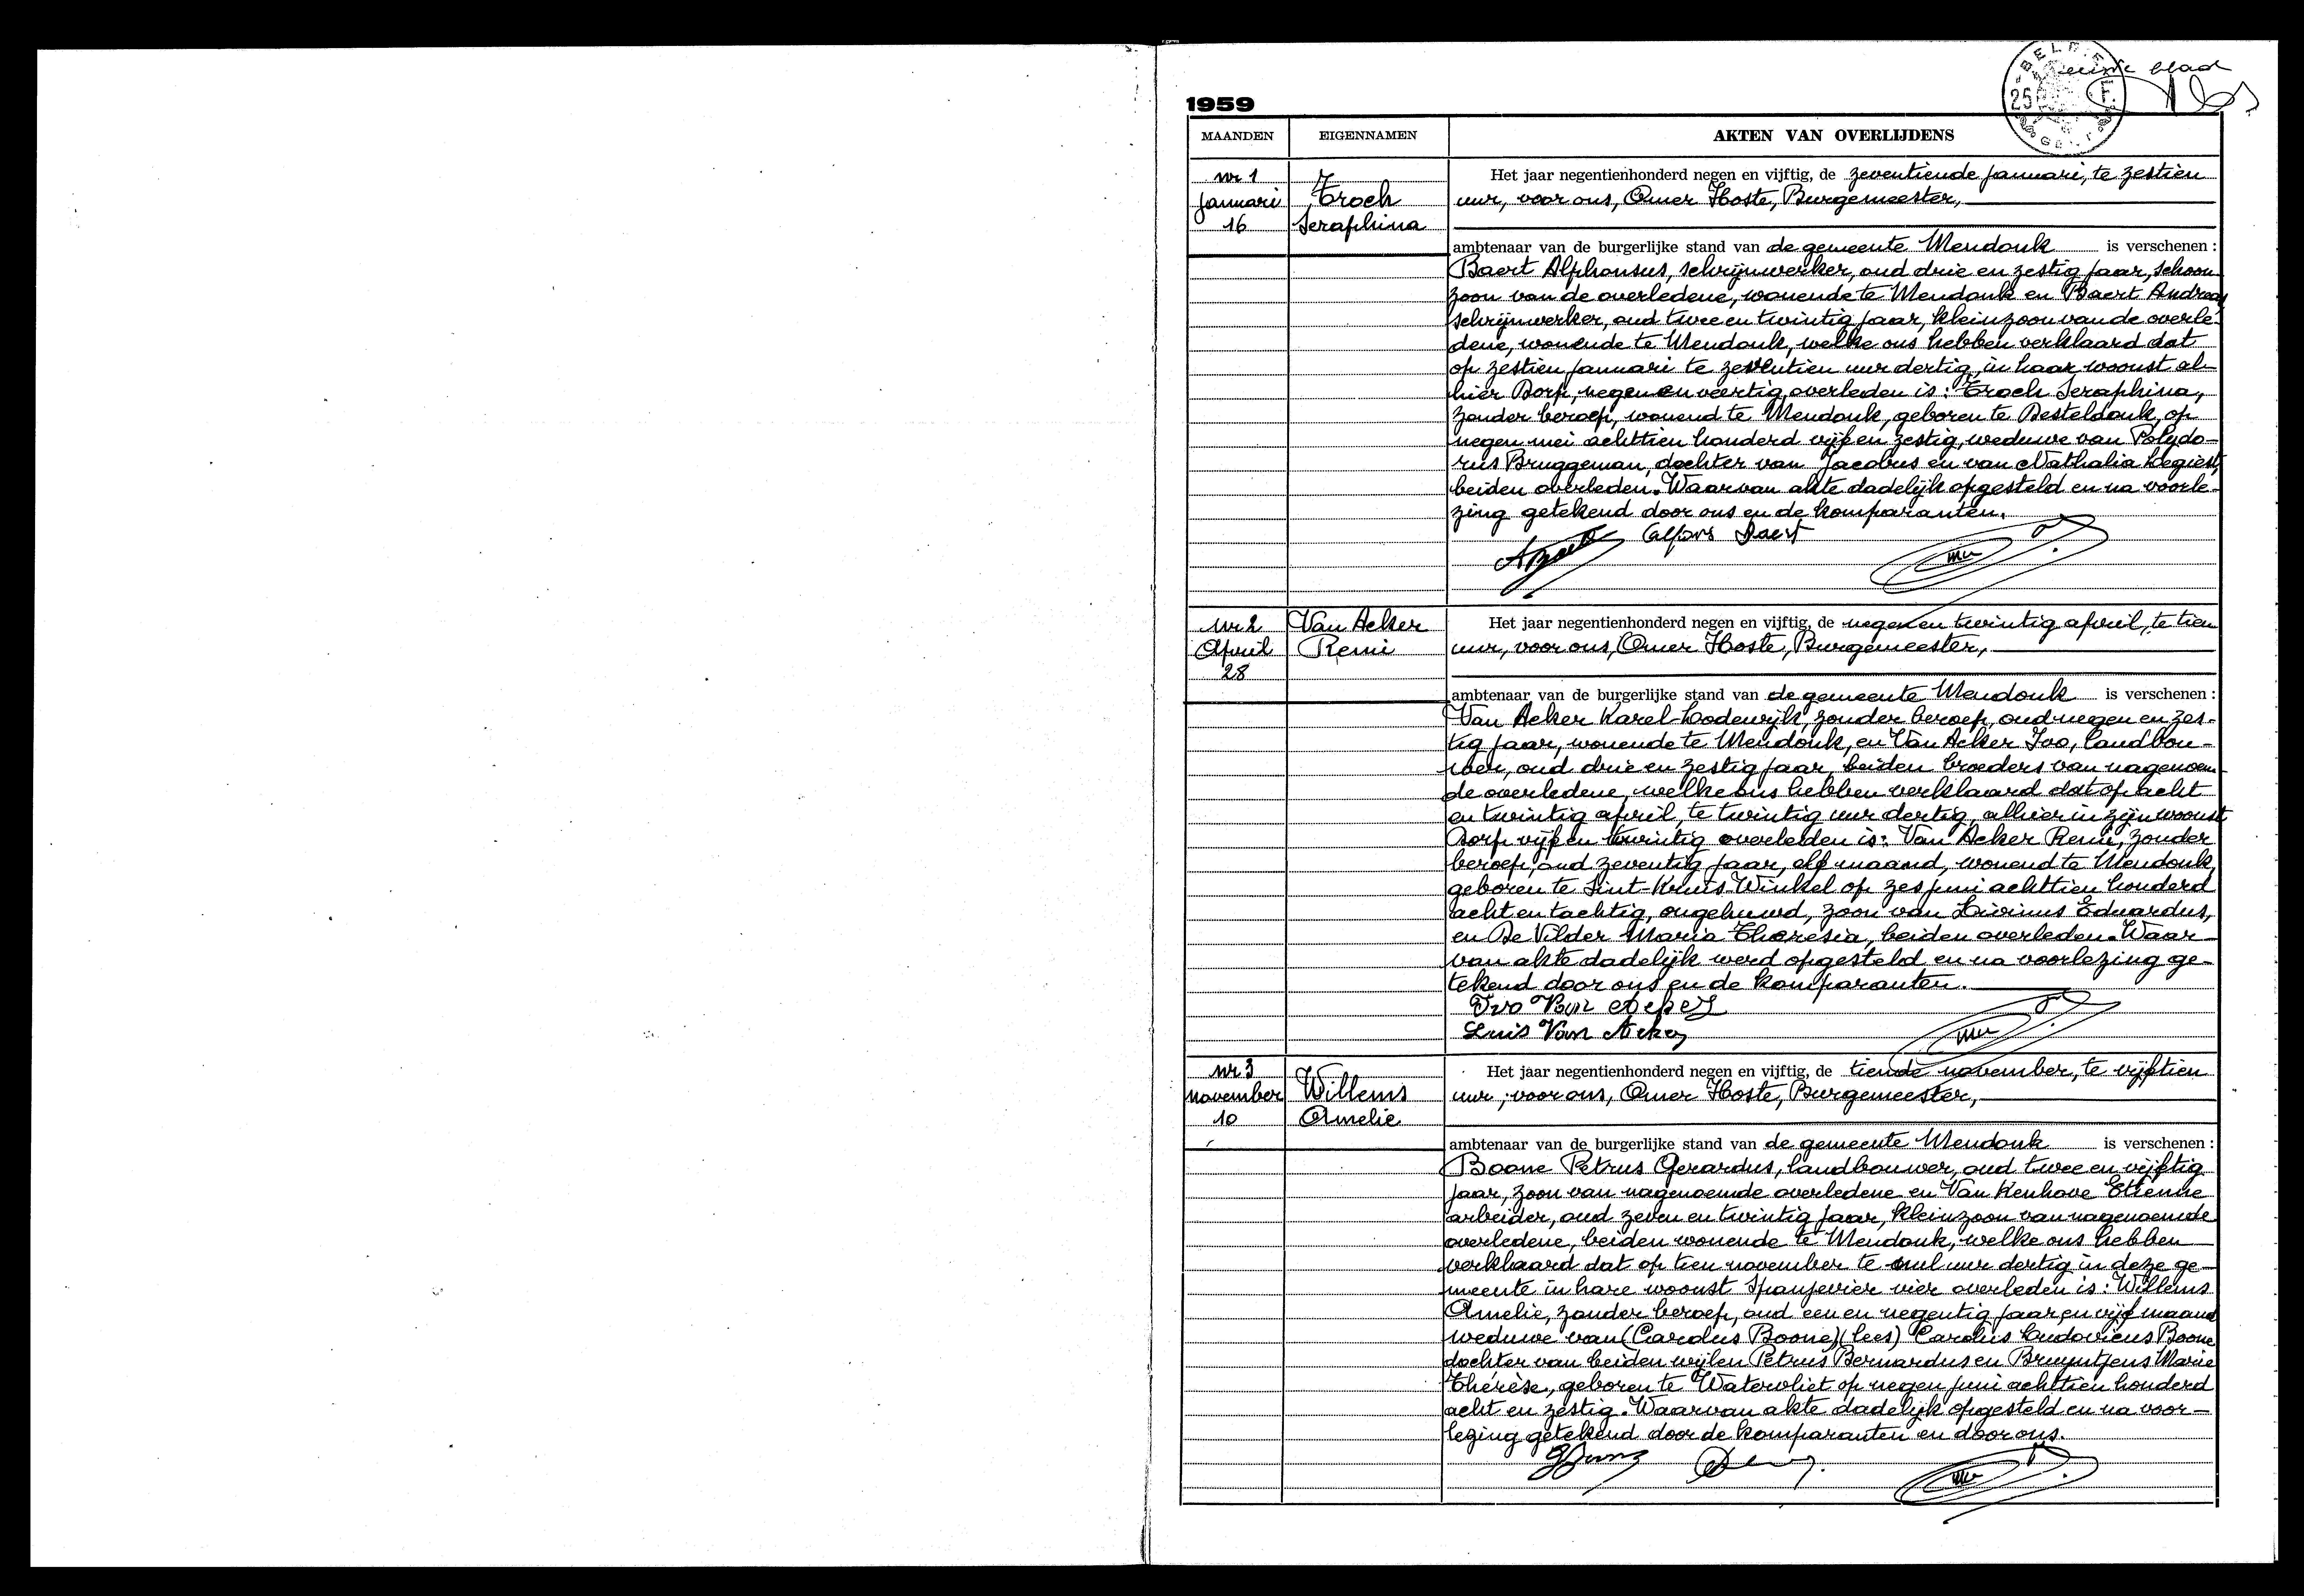 blad
BELGIE
25 F.
GENT
1959
MAANDEN EIGENNAMEN AKTEN VAN OVERLIJDENS
nr 1
januari
16
Troch
Seraphina
Het jaar negentienhonderd negen en vijftig, de zeventiende januari, te zestien
uur, voor ons, Omer Hoste, Burgemeester,
ambtenaar van de burgerlijke stand van de gemeente Mendonk is verschenen :
Baert Alphonsus, schrijnwerker, oud drie en zestig jaar, schoon-
zoon van de overledene, wonende te Mendonk en Baert Andreas
schrijnwerker, oud twee en twintig jaar, kleinzoon van de overle-
dene, wonende te Mendonk, welke ons hebben verklaard dat
op zestien januari te zeventien uur dertig, in haar woonst al-
hier Dorp, negen en veertig overleden is: Troch Seraphina,
zonder beroep, wonend te Mendonk, geboren te Desteldonk, op
negen mei achttien honderd vijf en zestig, weduwe van Polydo-
rus Bruggeman, dochter van Jacobus en van Nathalia Legiest,
beiden overleden. Waarvan akte dadelijk opgesteld en na voorle-
zing getekend door ons en de komparanten.
ABaert Alfons Baert
nr 2
April
28
Van Acker
Remi
Het jaar negentienhonderd negen en vijftig, de negen en twintig april, te tien
uur, voor ons, Omer Hoste, Burgemeester,
ambtenaar van de burgerlijke stand van de gemeente Mendonk is verschenen :
Van Acker Karel-Lodewijk, zonder beroep, oud negen en zes-
tig jaar, wonende te Mendonk, en Van Acker Ivo, landbou-
wer, oud drie en zestig jaar, beiden broeders van nagenoem-
de overledene, welke ons hebben verklaard dat op acht
en twintig april, te twintig uur dertig, alhier in zijn woonst
Dorp vijf en twintig overleden is: Van Acker Remi, zonder
beroep, oud zeventig jaar, elf maand, wonend te Mendonk,
geboren te Sint-Kruis-Winkel op zes juni achttien honderd
acht en tachtig, ongehuwd, zoon van Livinus Eduardus,
en De Vilder Maria Theresia, beiden overleden. Waar-
van akte dadelijk werd opgesteld en na voorlezing ge-
tekend door ons en de komparanten.
Ivo Van Acker
Luis Van Acker
nr 3
november
10
Willems
Amelie
Het jaar negentienhonderd negen en vijftig, de tiende november, te vijftien
uur, voor ons, Omer Hoste, Burgemeester,
ambtenaar van de burgerlijke stand van de gemeente Mendonk is verschenen :
Boone Petrus Gerardus, landbouwer, oud twee en vijftig
jaar, zoon van nagenoemde overledene en Van Kenhove Etienne
arbeider, oud zeven en twintig jaar, kleinzoon van nagenoemde
overledene, beiden wonende te Mendonk, welke ons hebben
verklaard dat op tien november te nul uur dertig in deze ge-
meente in hare woonst Spanjevier vier overleden is: Willems
Amelie, zonder beroep, oud een en negentig jaar en vijf maand
weduwe van (Carolus Boone) (lees) Carolus Ludovicus Boone
dochter van beiden wijlen Petrus Bernardus en Bruyntjens Marie
Thérèse, geboren te Watervliet op negen juni achttien honderd
acht en zestig. Waarvan akte dadelijk opgesteld en na voor-
lezing getekend door de komparanten en door ons.